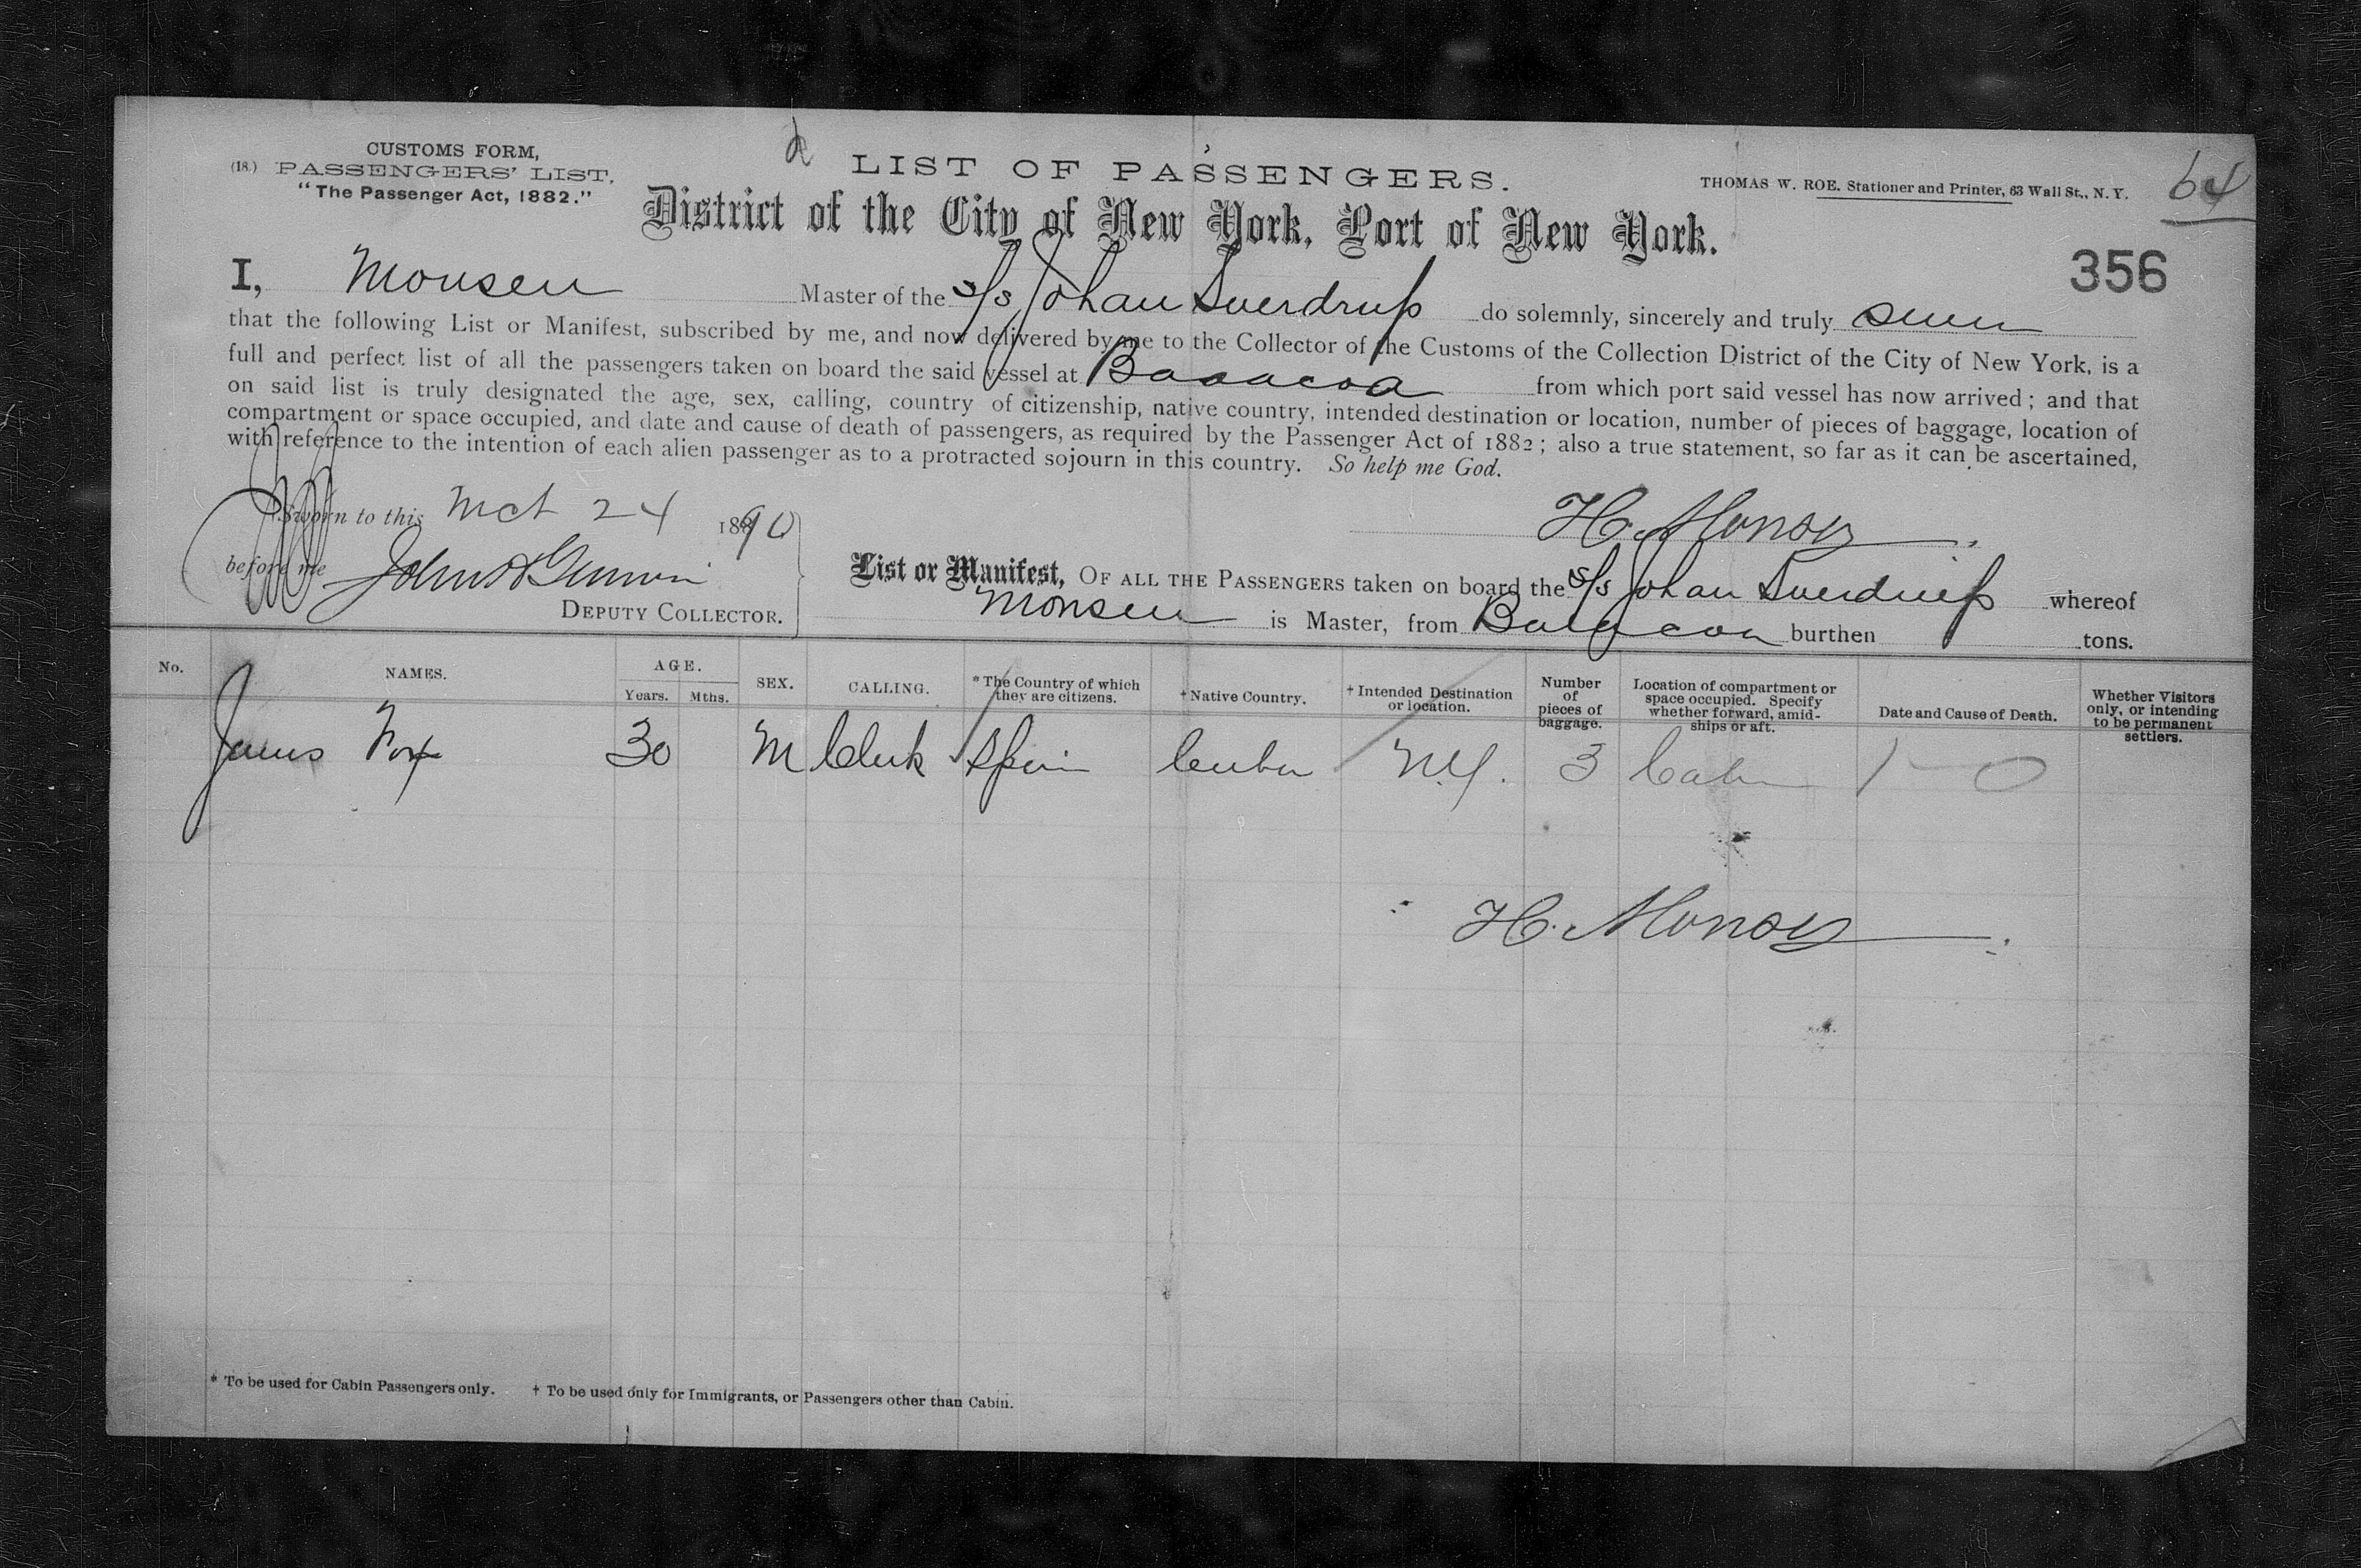 CUSTOMS FORM,
(18.) PASSENGERS' LIST,
"The Passenger Act, 1882."
LIST OF PASSENGERS.
THOMAS W. ROE. Stationer and Printer, 63 Wall St., N.Y.
64
District of the City of New York, Port of New York.
356
I, Monsen Master of the s/s Johan Sverdrup do solemnly, sincerely and truly swear
that the following List or Manifest, subscribed by me, and now delivered by me to the Collector of the Customs of the Collection District of the City of New York, is a
full and perfect list of all the passengers taken on board the said vessel at Baracoa from which port said vessel has now arrived; and that
on said list is truly designated the age, sex, calling, country of citizenship, native country, intended destination or location, number of pieces of baggage, location of
compartment or space occupied, and date and cause of death of passengers, as required by the Passenger Act of 1882; also a true statement, so far as it can be ascertained,
with reference to the intention of each alien passenger as to a protracted sojourn in this country. So help me God.
Sworn to this Mct 24 1890
H. Monsen
before me John
DEPUTY COLLECTOR.
List or Manifest, OF ALL THE PASSENGERS taken on board the s/s Johan Sverdrup whereof
Monsen is Master, from Baracoa burthen tons.
No. NAMES. AGE. Years. Mths. SEX. CALLING. * The Country of which they are citizens. † Native Country. † Intended Destination or location. Number of pieces of baggage. Location of compartment or space occupied. Specify whether forward, amid-ships or aft. Date and Cause of Death. Whether Visitors only, or intending to be permanent settlers.
30 M Clerk Spain Cuba N.Y. 3 Cabin 1 — 0
H. Monsen
* To be used for Cabin Passengers only. † To be used only for Immigrants, or Passengers other than Cabin.